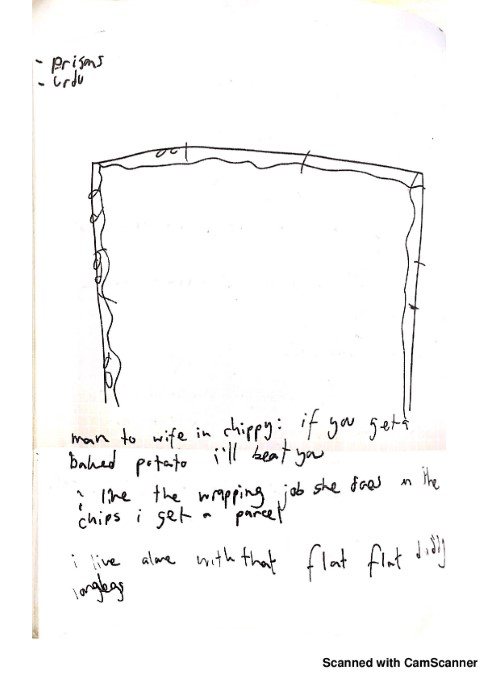 - prisons
- urdu
man to wife in chippy: if you get a
baked potato i'll beat you
i like the wrapping job she does on the
chips i get a parcel
i live alone with that flat flat diddy
longlegs
Scanned with CamScanner